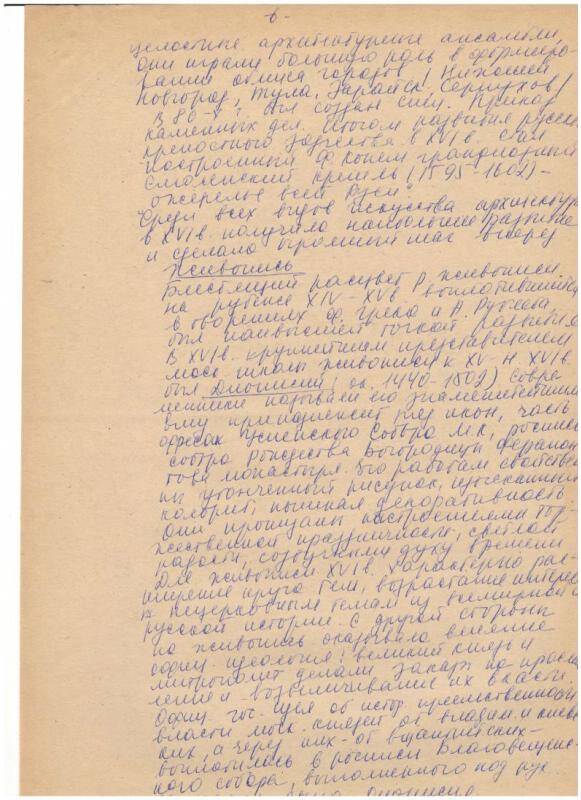 - 6 -
целостные архитектурные ансамбли,
они играли большую роль в формиро-
вании облика городов / Нижний
Новгород, Тула, Зарайск, Серпухов/
В 80-х был создан спец. Приказ
каменных дел. Итогом развития русск.
крепостного зодчества в XVI в. стал
построенный Ф. Конем грандиозный
Смоленский кремль (1595-1602) -
ожерелье всей Руси"
Среди всех видов искусства архитектура
в XVI в. получила наибольшее развитие
и сделала огромный шаг вперед
Живопись
Блестящий расцвет р. живописи
на рубеже XIV-XV в. воплотившийся
в творениях Ф. Грека и А. Рублева
был наивысшей точкой развития
В XVI в. крупнейшим представителем
моск. школы живописи к. XV - н. XVI в.
был Дионисий (ок. 1440-1502) совре-
менники называли его знаменитейшим
ему принадлежит ряд икон, часть
фресок Успенского Собора М.К., росписи
собора Рождества Богородицы Ферапон-
това монастыря. Его работам свойствен-
ны утонченный рисунок, изысканный
колорит, пышная декоративность
Они проникнуты настроениями тор-
жественной праздничности, светлой
радости, созвучными духу времени
Для живописи XVI в. характерно рас-
ширение круга тем, возрастание интереса
к нецерковным темам из всемирной и
русской истории. С другой стороны
на живопись оказывало влияние
офиц. идеология: великий князь и
митрополит делали заказы на прослав-
ление и возвеличивание их власти.
Офиц. гос. идея об истор. преемственности
власти моск. князей от владим. и киевс-
ких, а через них - от византийских -
воплотилась в росписи Благовещенс-
кого собора, выполненного под рук.